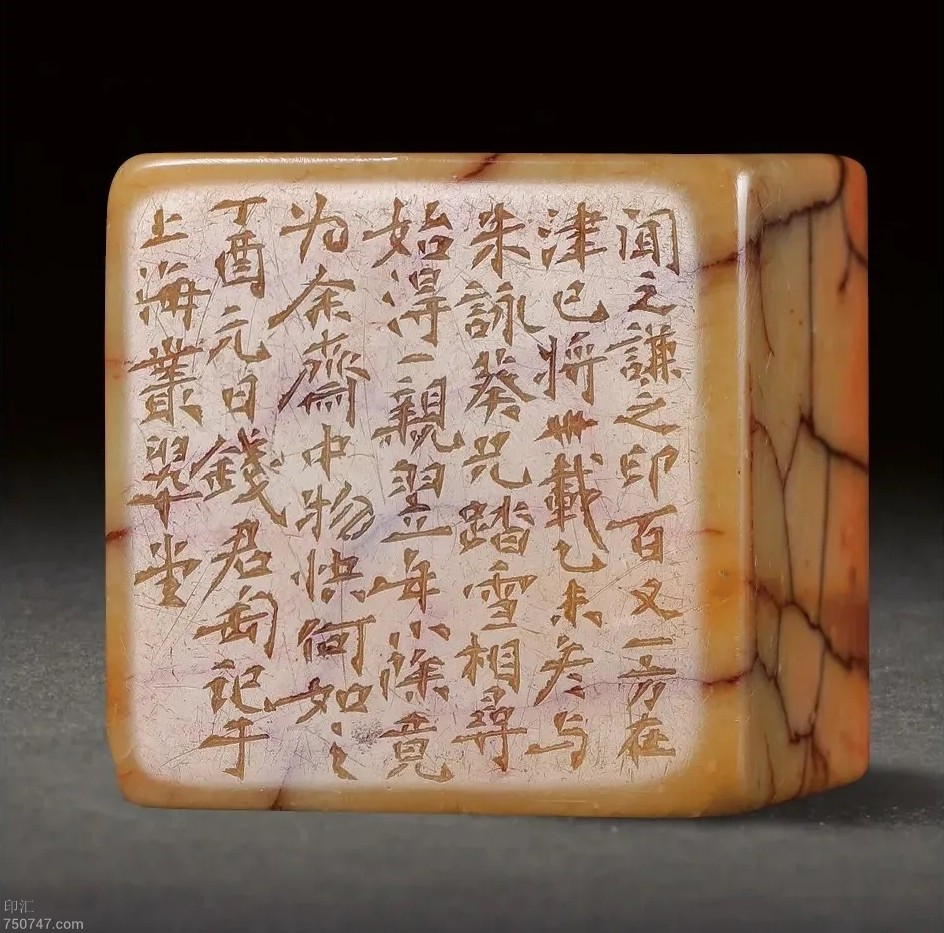 闻之謙之印百又一方在
津已將卅載乙未冬与
朱詠葵兄踏雪相尋
始得一親翌年小除竟
为余齋中物快何如之
丁酉元日錢君匋記于
上海叢翠堂
印汇
750747.com